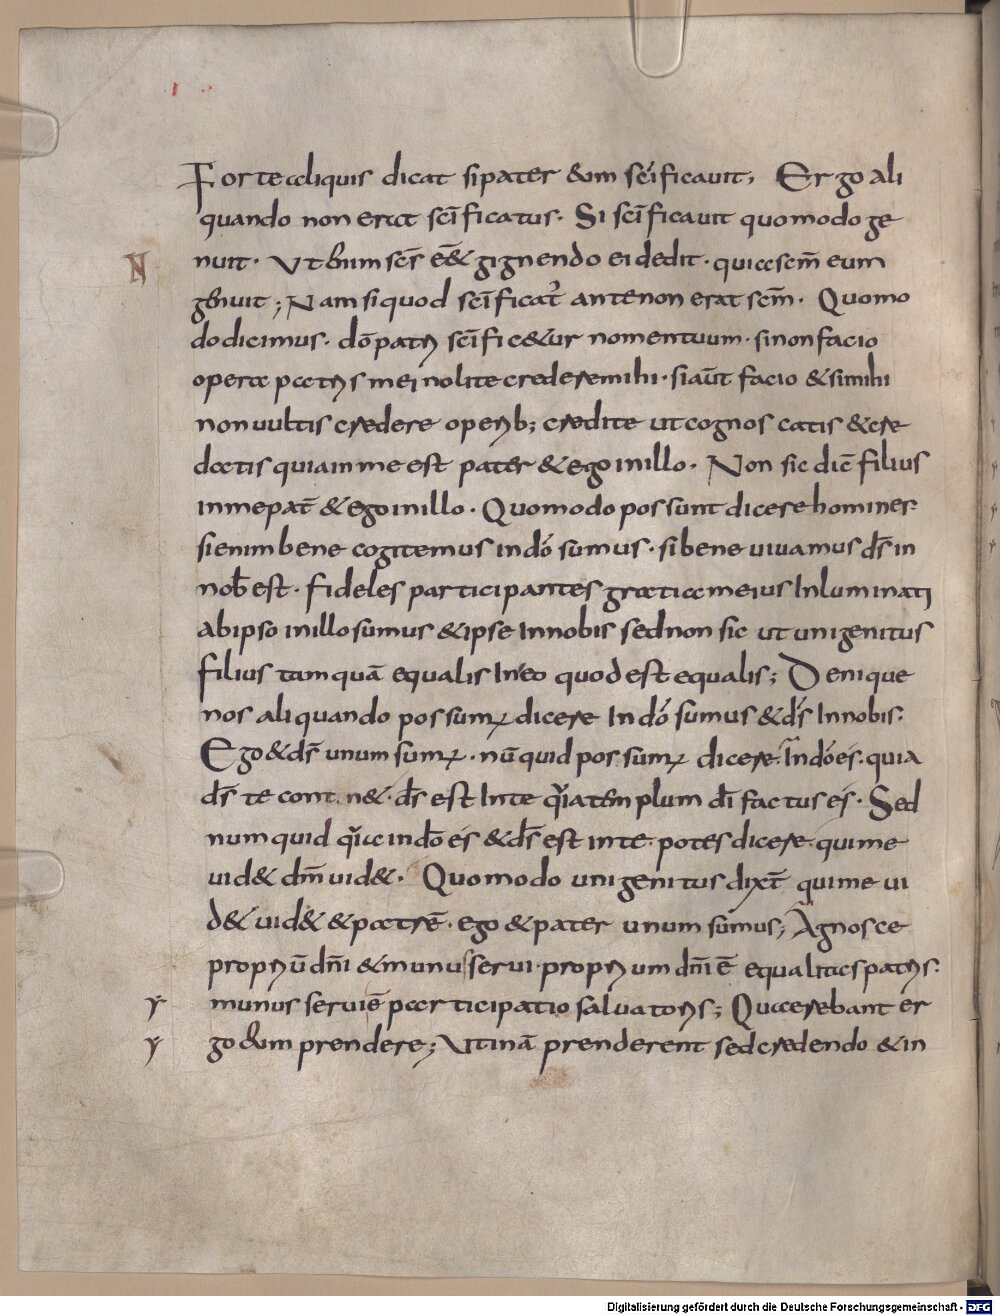 Forte aliquis dicat si pater eum scīficauit; Ergo ali
quando non erat scīficatus. Si scīficauit quomodo ge
N nuit. Ut enim scs̄ ēet gignendo ei dedit. quia scm̄ eum
genuit; Nam si quod scīficat̄ ante non erat scm̄. Quomo
do dicimus. dō patri scīficetur nomen tuum. si non facio
opera patris mei nolite credere mihi. si aūt facio & si mihi
non uultis credere operib; credite ut cognoscatis & cre
datis quia in me est pater & ego in illo. Non sic dic̄ filius
in me pat̄ & ego in illo. Quomodo possunt dicere homines.
si enim bene cogitemus in dō sumus. si bene uiuamus ds̄ in
nob̄ est. fideles participantes gratiam eius Inluminati
ab ipso in illo sumus & ipse In nobis sed non sic ut unigenitus
filius tamquā equalis In eo quod est equalis; Denique
nos aliquando possum; dicere In dō sumus & ds̄ In nobis.
Ego & ds̄ unum sum;. nūquid possum; dicere. In dō es. quia
ds̄ te contin&. ds̄ est In te q̄ia templum dī factus es. Sed
numquid q̄ia in dō es & ds̄ est in te. potes dicere. qui me
uid& dm̄ uid&. Quomodo unigenitus dix̄t qui me ui
d& uid& & patrē. ego & pater unum sumus; Agnosce
propriū dn̄i & munus serui. proprium dn̄i ē equalitas patris.
munus serui ē participatio saluatoris; Quaerebant er
go eum prendere; Utinā prenderent sed credendo & in
Digitalisierung gefördert durch die Deutsche Forschungsgemeinschaft - DFG